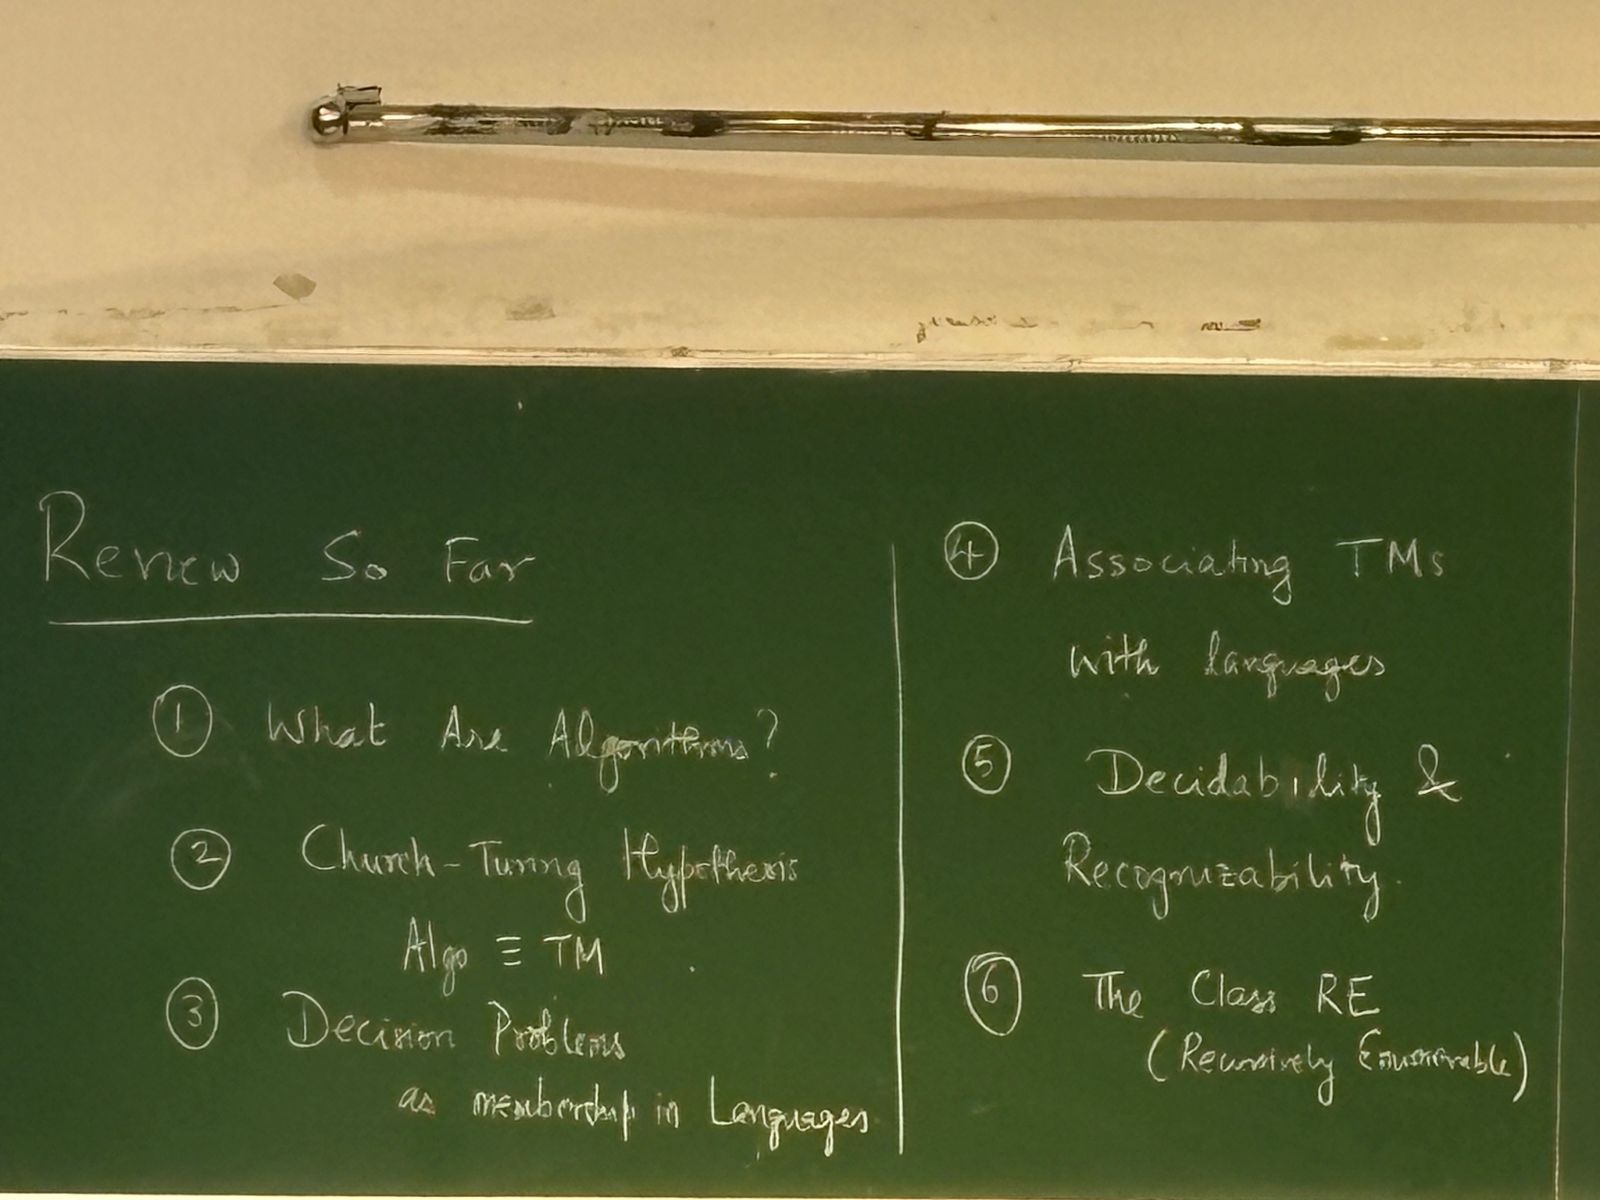 Review So Far
① What Are Algorithms?
② Church-Turing Hypothesis
Algo ≡ TM
③ Decision Problems
as membership in Languages
④ Associating TMs
with languages
⑤ Decidability &
Recognizability.
⑥ The Class RE
(Recursively Enumerable)